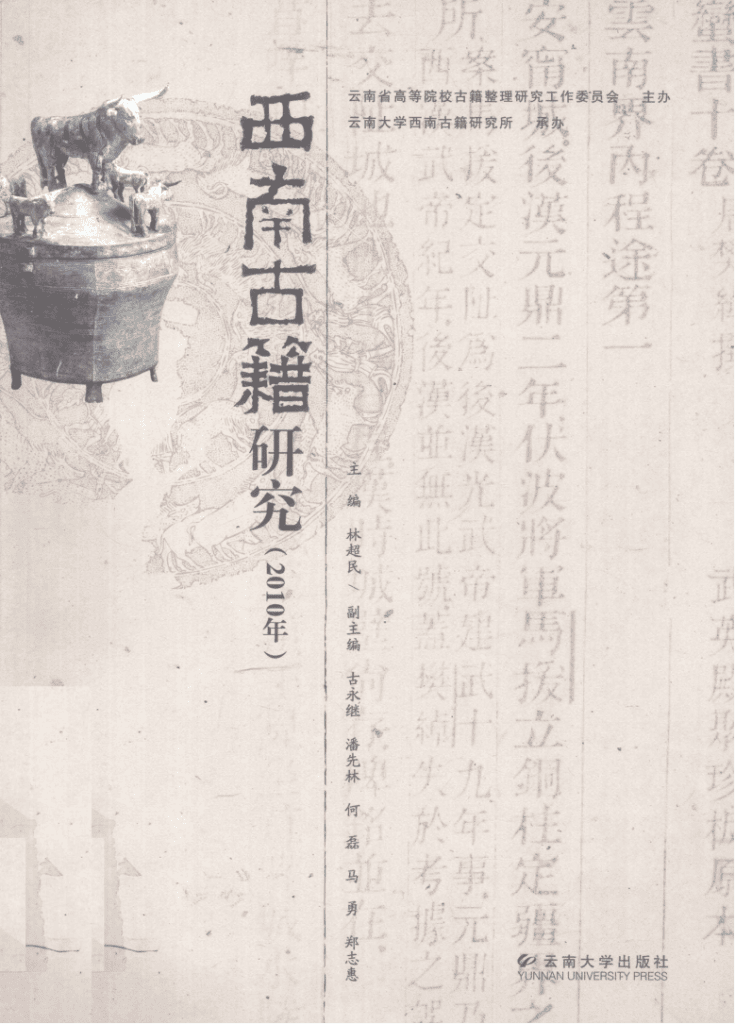 云南省高等院校古籍整理研究工作委员会 主办
云南大学西南古籍研究所 承办
西南古籍研究(2010年)
主编 林超民/副主编 古永继 潘先林 何磊 马勇 郑志惠
蠻書十卷
雲南界內程途第一
安甯城後漢元鼎二年伏波將軍馬援立銅柱定疆界之
案援定交阯爲後漢光武帝建武十九年事元鼎乃
西武帝紀年後漢並無此號蓋樊綽失於考據之
所
去交
城
漢時城
武英殿聚珍板原本
云南大学出版社
YUNNAN UNIVERSITY PRESS